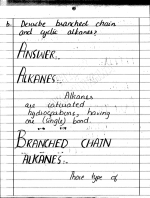 b. Describe branched chain
and cyclic alkanes?
ANSWER:.
ALKANES:.
Alkanes
are saturated
hydrocarbons, having
one (single) bond.
BRANCHED CHAIN
ALKANES:.
Those type of